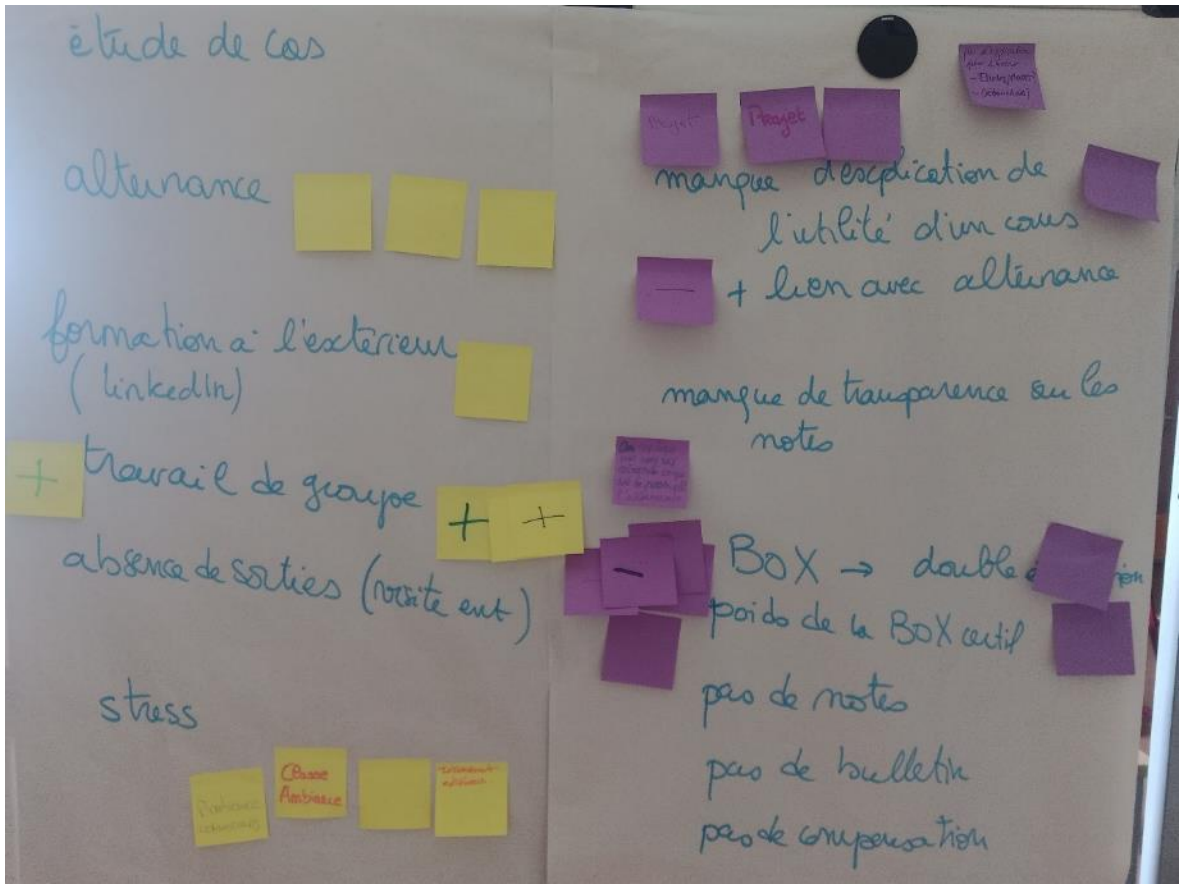 étude de cas
alternance
formation à l'extérieur
(linkedIn)
+
travail de groupe
+
+
absence de sorties (visite ent)
stress
Classe
Ambiance
Projet
Projet
manque d'explication de
l'utilité d'un cours
—
+ lien avec alternance
manque de transparence sur les
notes
—
BOX → double
poids de la BOX certif
pas de notes
pas de bulletin
pas de compensation